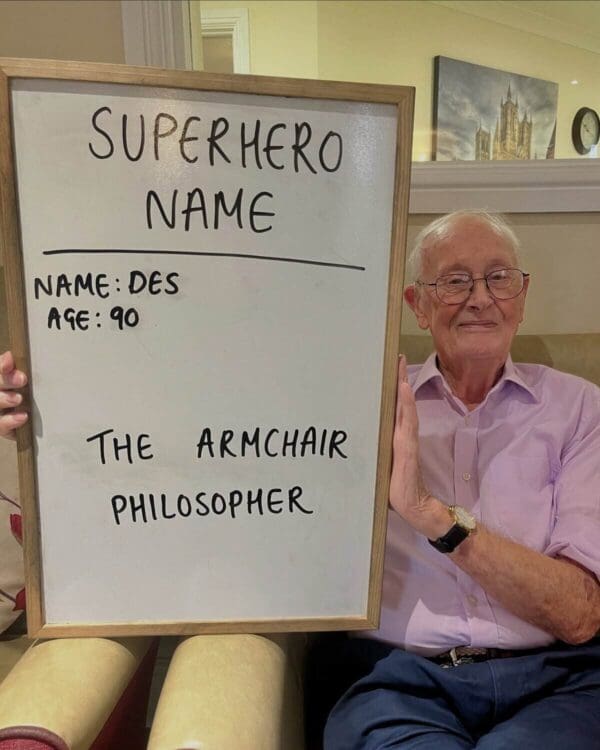 SUPERHERO
NAME
NAME: DES
AGE: 90
THE ARMCHAIR
PHILOSOPHER